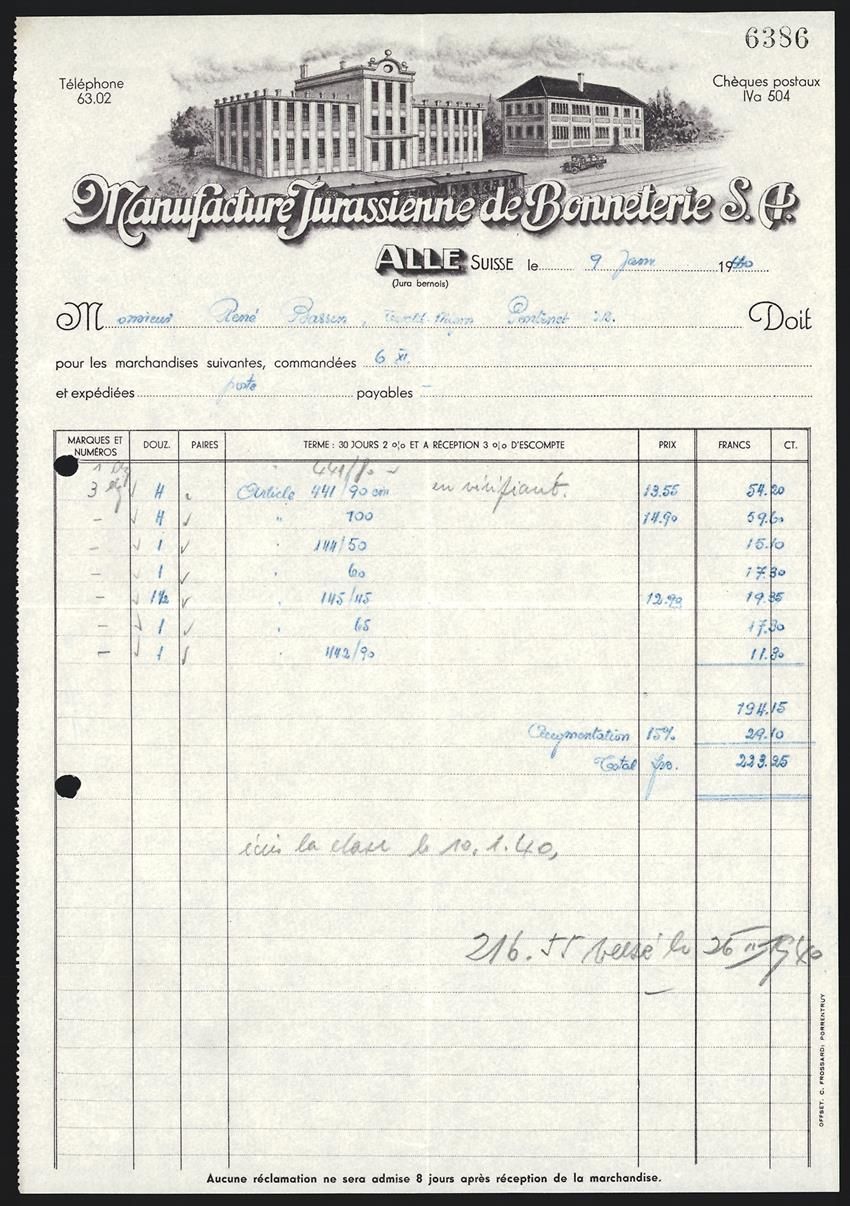 6386
Téléphone
63.02
Chèques postaux
IVa 504
Manufacture Jurassienne de Bonneterie S.A.
ALLE SUISSE le 9 Janv 1940
(Jura bernois)
Monsieur René Bassin, Doit
pour les marchandises suivantes, commandées 6 XI.
et expédiées poste payables –
MARQUES ET NUMÉROS DOUZ. PAIRES TERME: 30 JOURS 2 o/o ET A RÉCEPTION 3 o/o D'ESCOMPTE PRIX FRANCS CT.
1 441/80 –
3 4 Article 441/90 cm en vérifiant. 13.55 54.20
– 4 " 100 14.90 59.60
– 1 " 144/50 15.10
– 1 " 60 17.30
– 1½ " 145/45 12.90 19.35
– 1 " 65 17.30
– 1 " 442/90 11.30
194.15
Augmentation 15% 29.10
Total frs. 223.25
la le 10.1.40,
216.55 versé le 26 1940
Aucune réclamation ne sera admise 8 jours après réception de la marchandise.
OFFSET. C. FROSSARD; PORRENTRUY